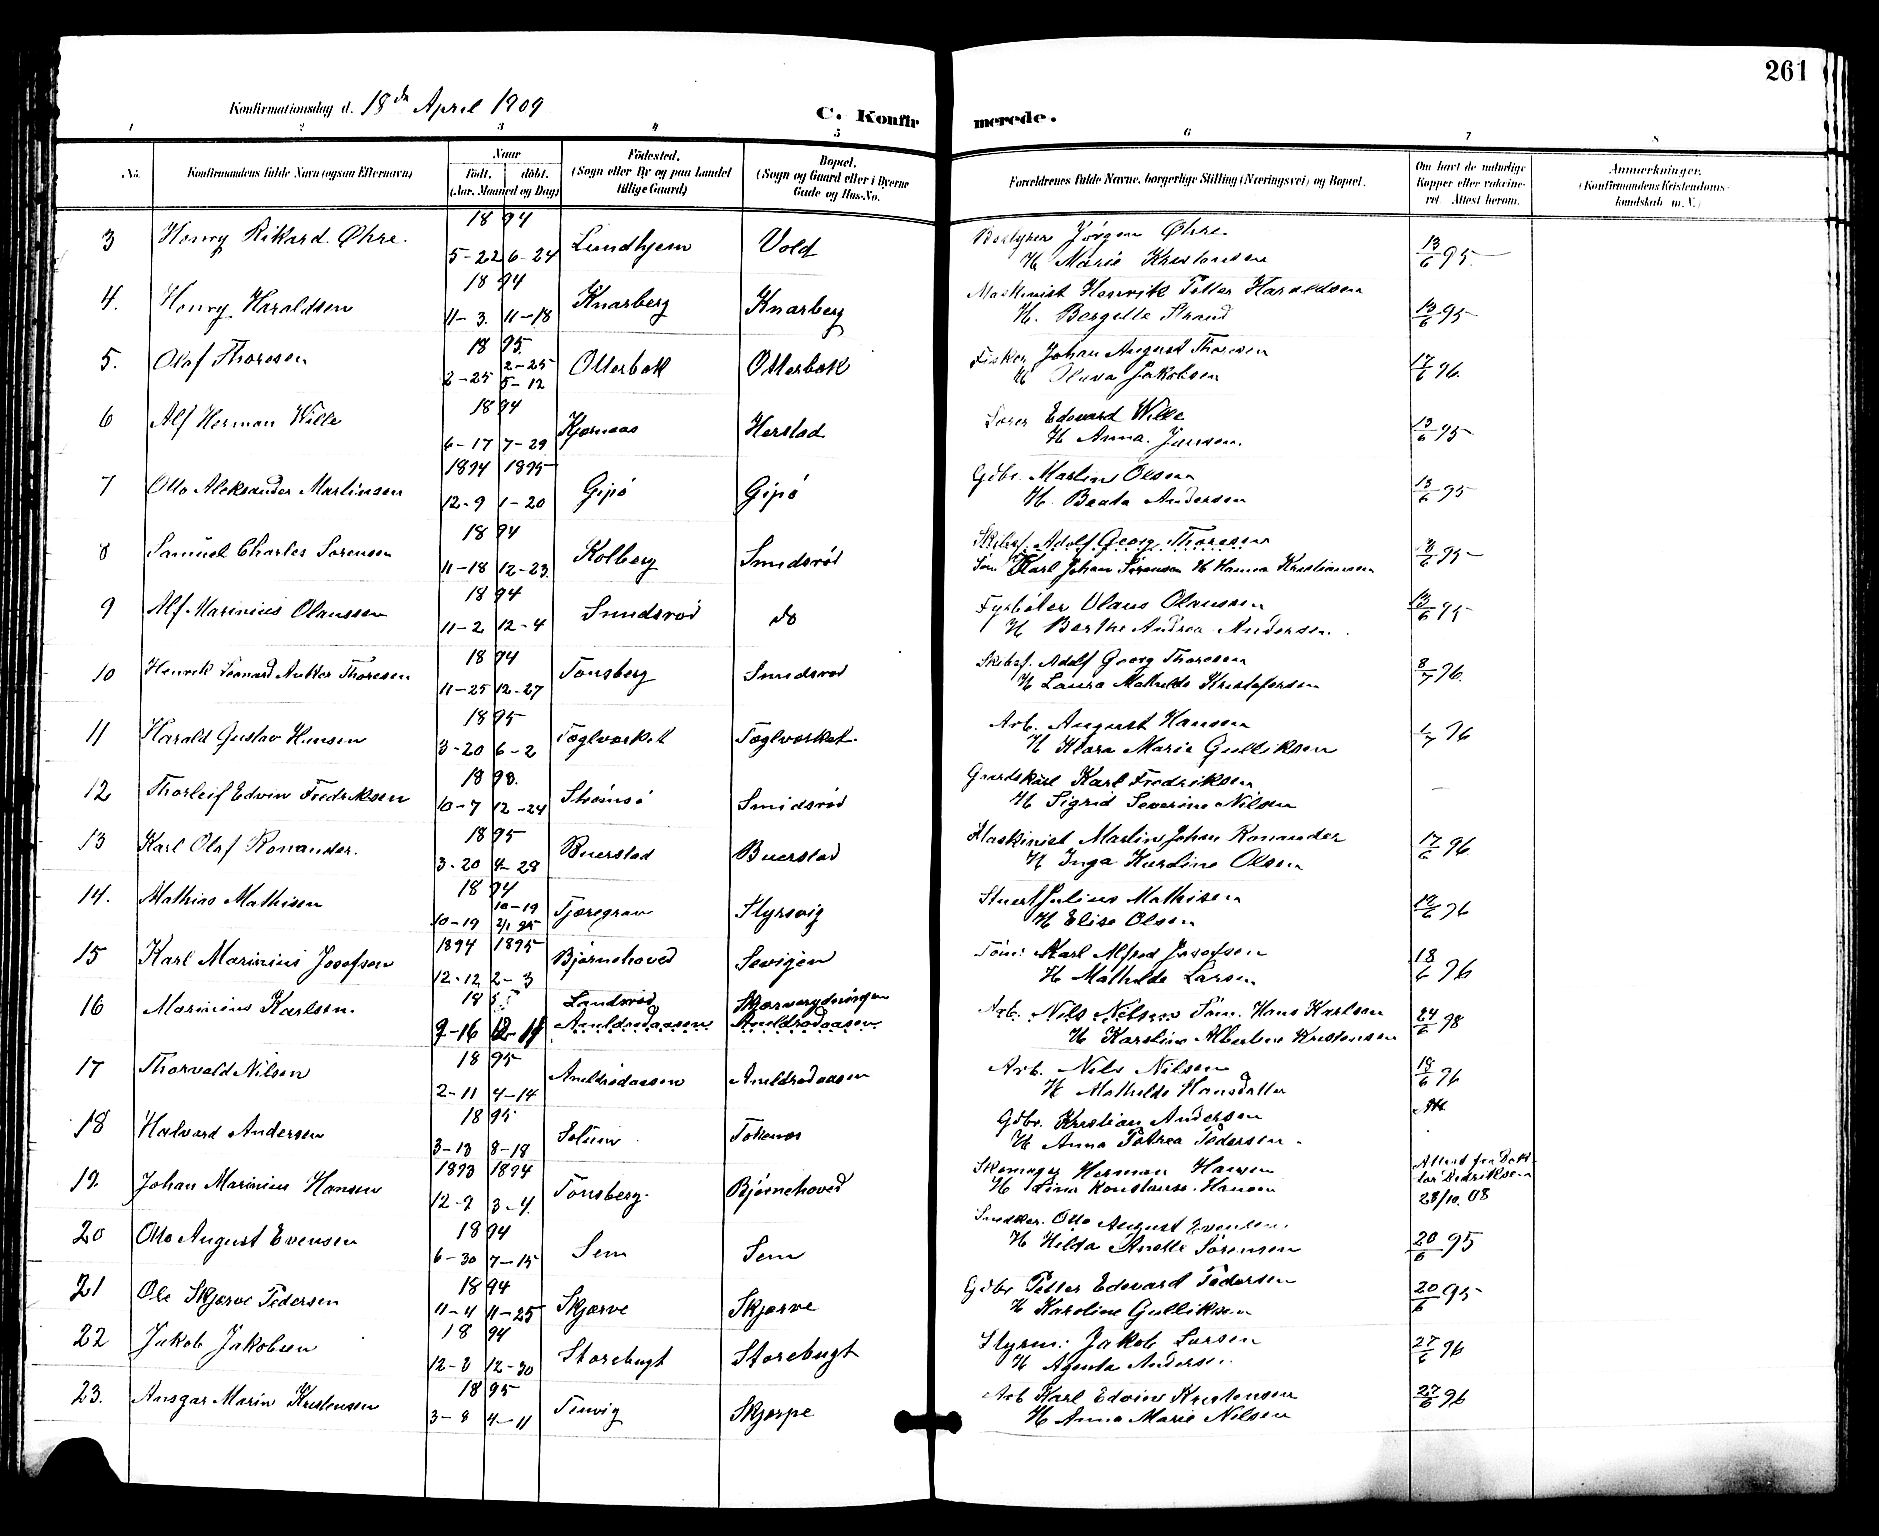 261
Konfirmationsdag d. 18de April 1909
C. Konfirmerede.
1 2 3 4 5 6 7 8
No. Konfirmandens fulde Navn (ogsaa Efternavn) Naar født. døbt. (Aar. Maaned og Dag) Fødested. (Sogn eller By og paa Landet tillige Gaard) Bopæl. (Sogn og Gaard eller i Byerne Gade og Hus-No. Forældrenes fulde Navne, borgerlige Stilling (Næringsvei) og Bopæl. Om havt de naturlige Kopper eller vakcineret. Attest herom. Anmerkninger. (Konfirmandens Kristendomskundskab m. V.)
3 Henry Rikard Øhre. 1894 5-22 6-24 Lundhjem Vold Bestyrer Jörgen Øhre. H Marie Kristensen 13/6 95
4. Henry Haraldsen 1894 11-3. 11-18 Knarberg Knarberg Maskinist Henrik Petter Haraldsen H. Bergette Strand 13/6 95
5. Olaf Thoresen 1895. 2-25 2-25 5-12 Otterbæk Otterbæk Fisker Johan August Thoresen H Oluva Jakobsen 17/6 96.
6 Alf Herman Wille 1894 6-17 7-29 Kjærnaas Herstad Lærer Edevard Wille H Anna Jansen. 13/6 95
7 Otto Aleksander Martinsen 1894 1895 12-9 1-20 Gipö Gipö Gdbr. Martin Olsen H. Beata Andersen 13/6 95
8 Samuel Charles Sorensen 1894 11-18 12-23. Kolberg Smidsröd Skibsf. Adolf Georg Thoresen Töm Karl Johan Sörensen H Hanna Kristiansen 95
9 Alf Marinius Olaussen 1894 11-2 12-4 Smidsröd do Fyrböter Olaus Olaussen H Berthe Andrea Andersen. 13/6 95
10 Henrik Leonard Anker Thoresen 1894 11-25 12-27 Tönsberg Smidsröd Skibsf. Adolf Georg Thoresen H Laura Mathilde Kristofersen 8/7 96.
11 Harald Gustav Hansen 1895 3-20 6-2 Teglværket Teglværket. Arb. August Hansen H Klara Marie Gulliksen 96
12 Thorleif Edvin Fredriksen 1893. 10-7 12-24 Strömsö Smidsröd Gaardskarl Karl Fredriksen H Sigrid Severine Nilsen —
13 Karl Olaf Ronander. 1895 3-20 4-28 Buerstad Buerstad Maskinist Martin Johan Ronander H Inga Karoline Olsen 17/6 96
14. Mathias Mathisen 1894 10-19 10-19 95 Tjæregrav Styrsvig Stuert Julius Mathisen H Elise Olsen 96
15 Karl Marinius Josefsen 1894 1895 12-12 2-3 Bjørnehoved Sevigen Töm: Karl Alfred Josefsen H Mathilde Larsen 18/6 96
16 Marinius Karlsen. 18 9-16 Landsröd Amlrödaasen Amlrödaasen Arb. Nils Nilsen Töm. Hans Karlsen H Karoline Albertine Kristensen 24/6 98
17 Thorvald Nilsen 1895 2-11 4-14 Amlrödaasen Amlrödaasen Arb. Nils Nilsen H Mathilde Hansdatter 18/6 96
18 Halvard Andersen 1895 3-13 8-18 Solum Tokenes Gdbr. Kristian Andersen H Anna Petrea Pedersen.
19. Johan Marinius Hansen 1893 1894 12-9 3-4. Tönsberg. Bjørnehoved Skomager Herman Hansen H Lina Konstanse Hansen Attest fra Doktor Diedriksen 28/10. 08
20 Otto August Evensen 1894 6-30 7-15 Sem Sem Snedker. Otto August Evensen. H Hilda Anette Sörensen 20/6 95
21 Ole Skjærve Pedersen 1894 11-4 11-25 Skjærve Skjærve Gdbr Petter Edevard Pedersen H Karoline Gulliksen 20/6 95
22 Jakob Jakobsen 1894 12-2 12-30 Storebugt Storebugt Styrm: Jakob Larsen H Agenta Andersen. 27/6 96
23. Ansgar Marin Kristensen 1895 3-8 4-11 Tinvig Skjerpe Arb Karl Edvin Kristensen H Anna Marie Nilsen 27/6 96